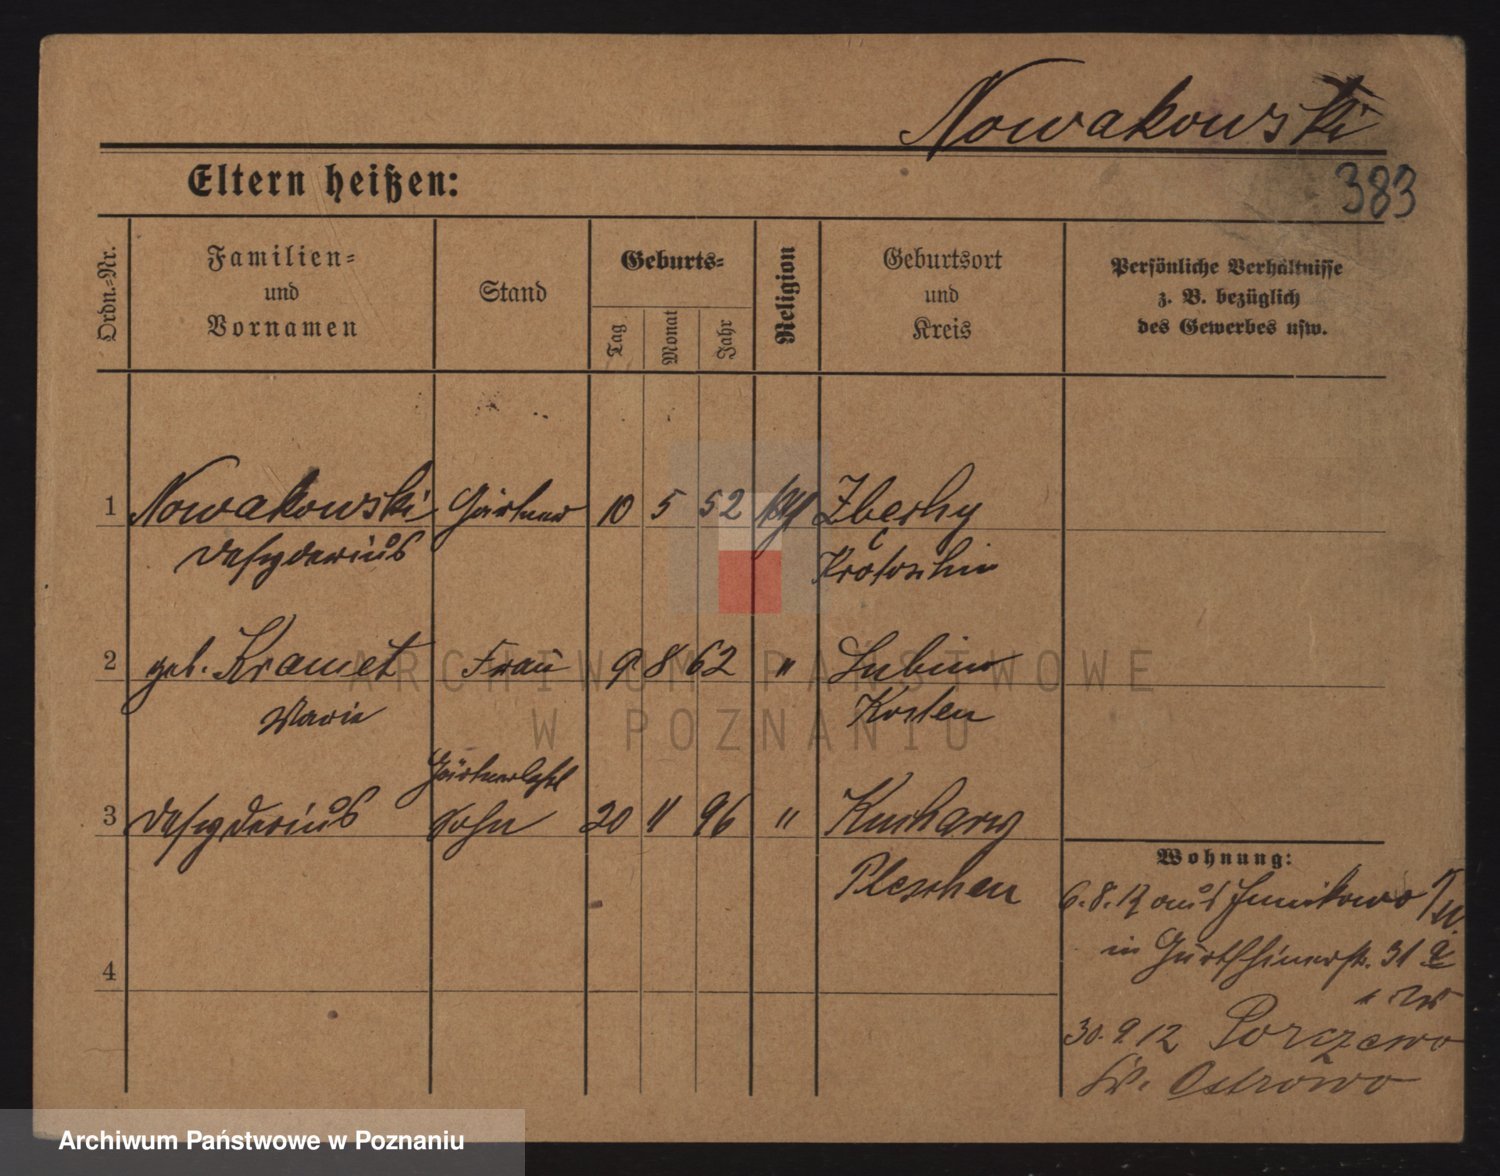 Nowakowski
Eltern heißen:
383
Ordn.-Nr.
Familien-
und
Vornamen
Stand
Geburts-
Tag
Monat
Jahr
Religion
Geburtsort
und
Kreis
Persönliche Verhältnisse
z. B. bezüglich
des Gewerbes usw.
1 Nowakowski Gärtner 10 5 52 kth Zberky
Desyderius Krotoschin
2 geb. Kramet Frau 9 8 62 " Lubin
Marie Kosten
Gärtnerlehrl
3 Desyderius Sohn 20 4 96 " Kuchary
Pleschen
Wohnung:
6.8.12 aus Junikowo
in 31
4
30.9.12 Porczewo
Kr. Ostrowo
ARCHIWUM PAŃSTWOWE
W POZNANIU
Archiwum Państwowe w Poznaniu